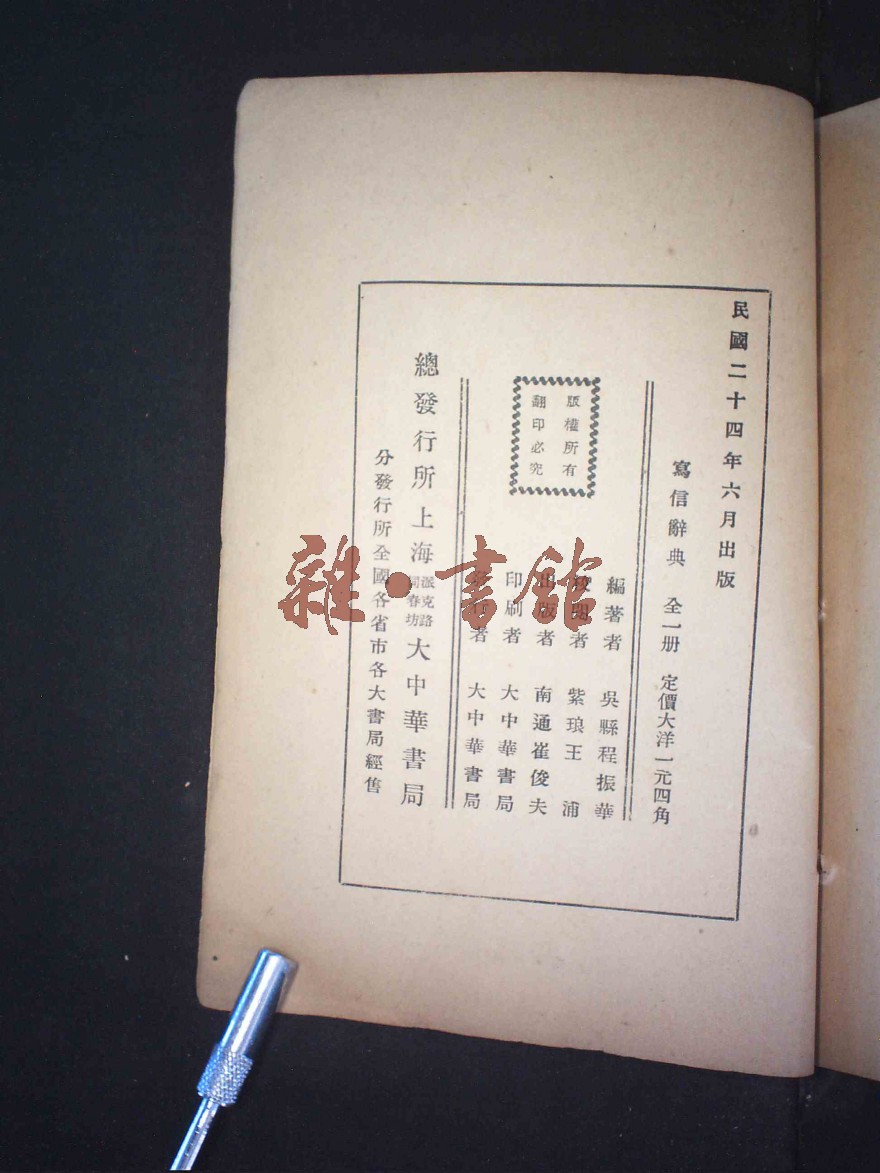 民國二十四年六月出版
寫信辭典 全一册 定價大洋一元四角
版權所有
翻印必究
編著者 吳縣程振華
校閱者 紫琅王浦
出版者 南通崔俊夫
印刷者 大中華書局
發行者 大中華書局
總發行所上海派克路同春坊大中華書局
分發行所全國各省市各大書局經售
雜·書館